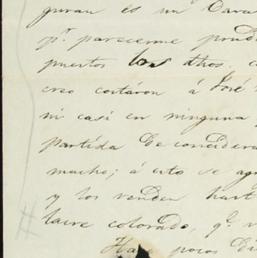 guran es un Cara
pr. parecerme prud
puertos los dhos. c
creo cortáron á José
ni casi en ninguna
partida de considera
mucho; á esto se ag
y los venden hart
lacre colorado, qe. v
Hay pocos di